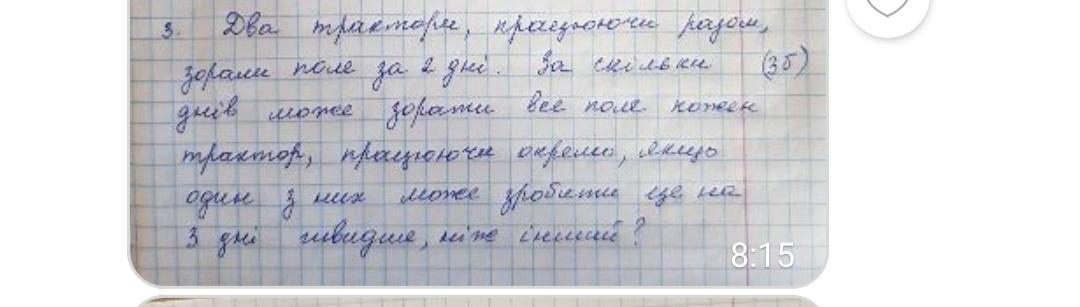 3. Два трактори, працюючи разом,
зорали поле за 2 дні. За скільки (3б)
днів може зорати все поле кожен
трактор, працюючи окремо, якщо
один з них може зробити це на
3 дні швидше, ніж інший?
8:15